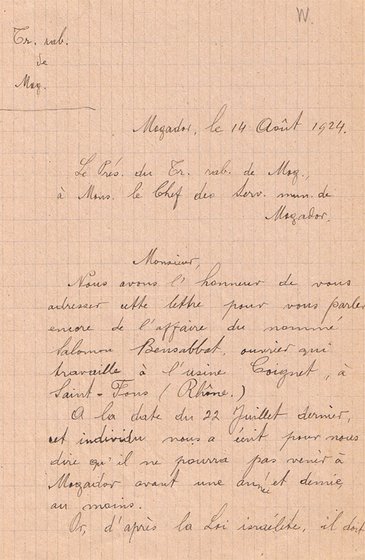 W.
Tr. rab.
de
Mog.
Mogador, le 14 Août 1924.
Le Prés. du Tr. rab. de Mog.,
à Mons. le Chef des Serv. mun. de
Mogador.
Monsieur,
Nous avons l'honneur de vous
adresser cette lettre pour vous parler
encore de l'affaire du nommé
Salomon Bensabbat, ouvrier qui
travaille à l'usine Coignet, à
Saint-Fons (Rhône.)
A la date du 22 Juillet dernier,
cet individu nous a écrit pour nous
dire qu'il ne pourra pas venir à
Mogador avant une année et demie,
au moins.
Or, d'après la Loi israélite, il doit